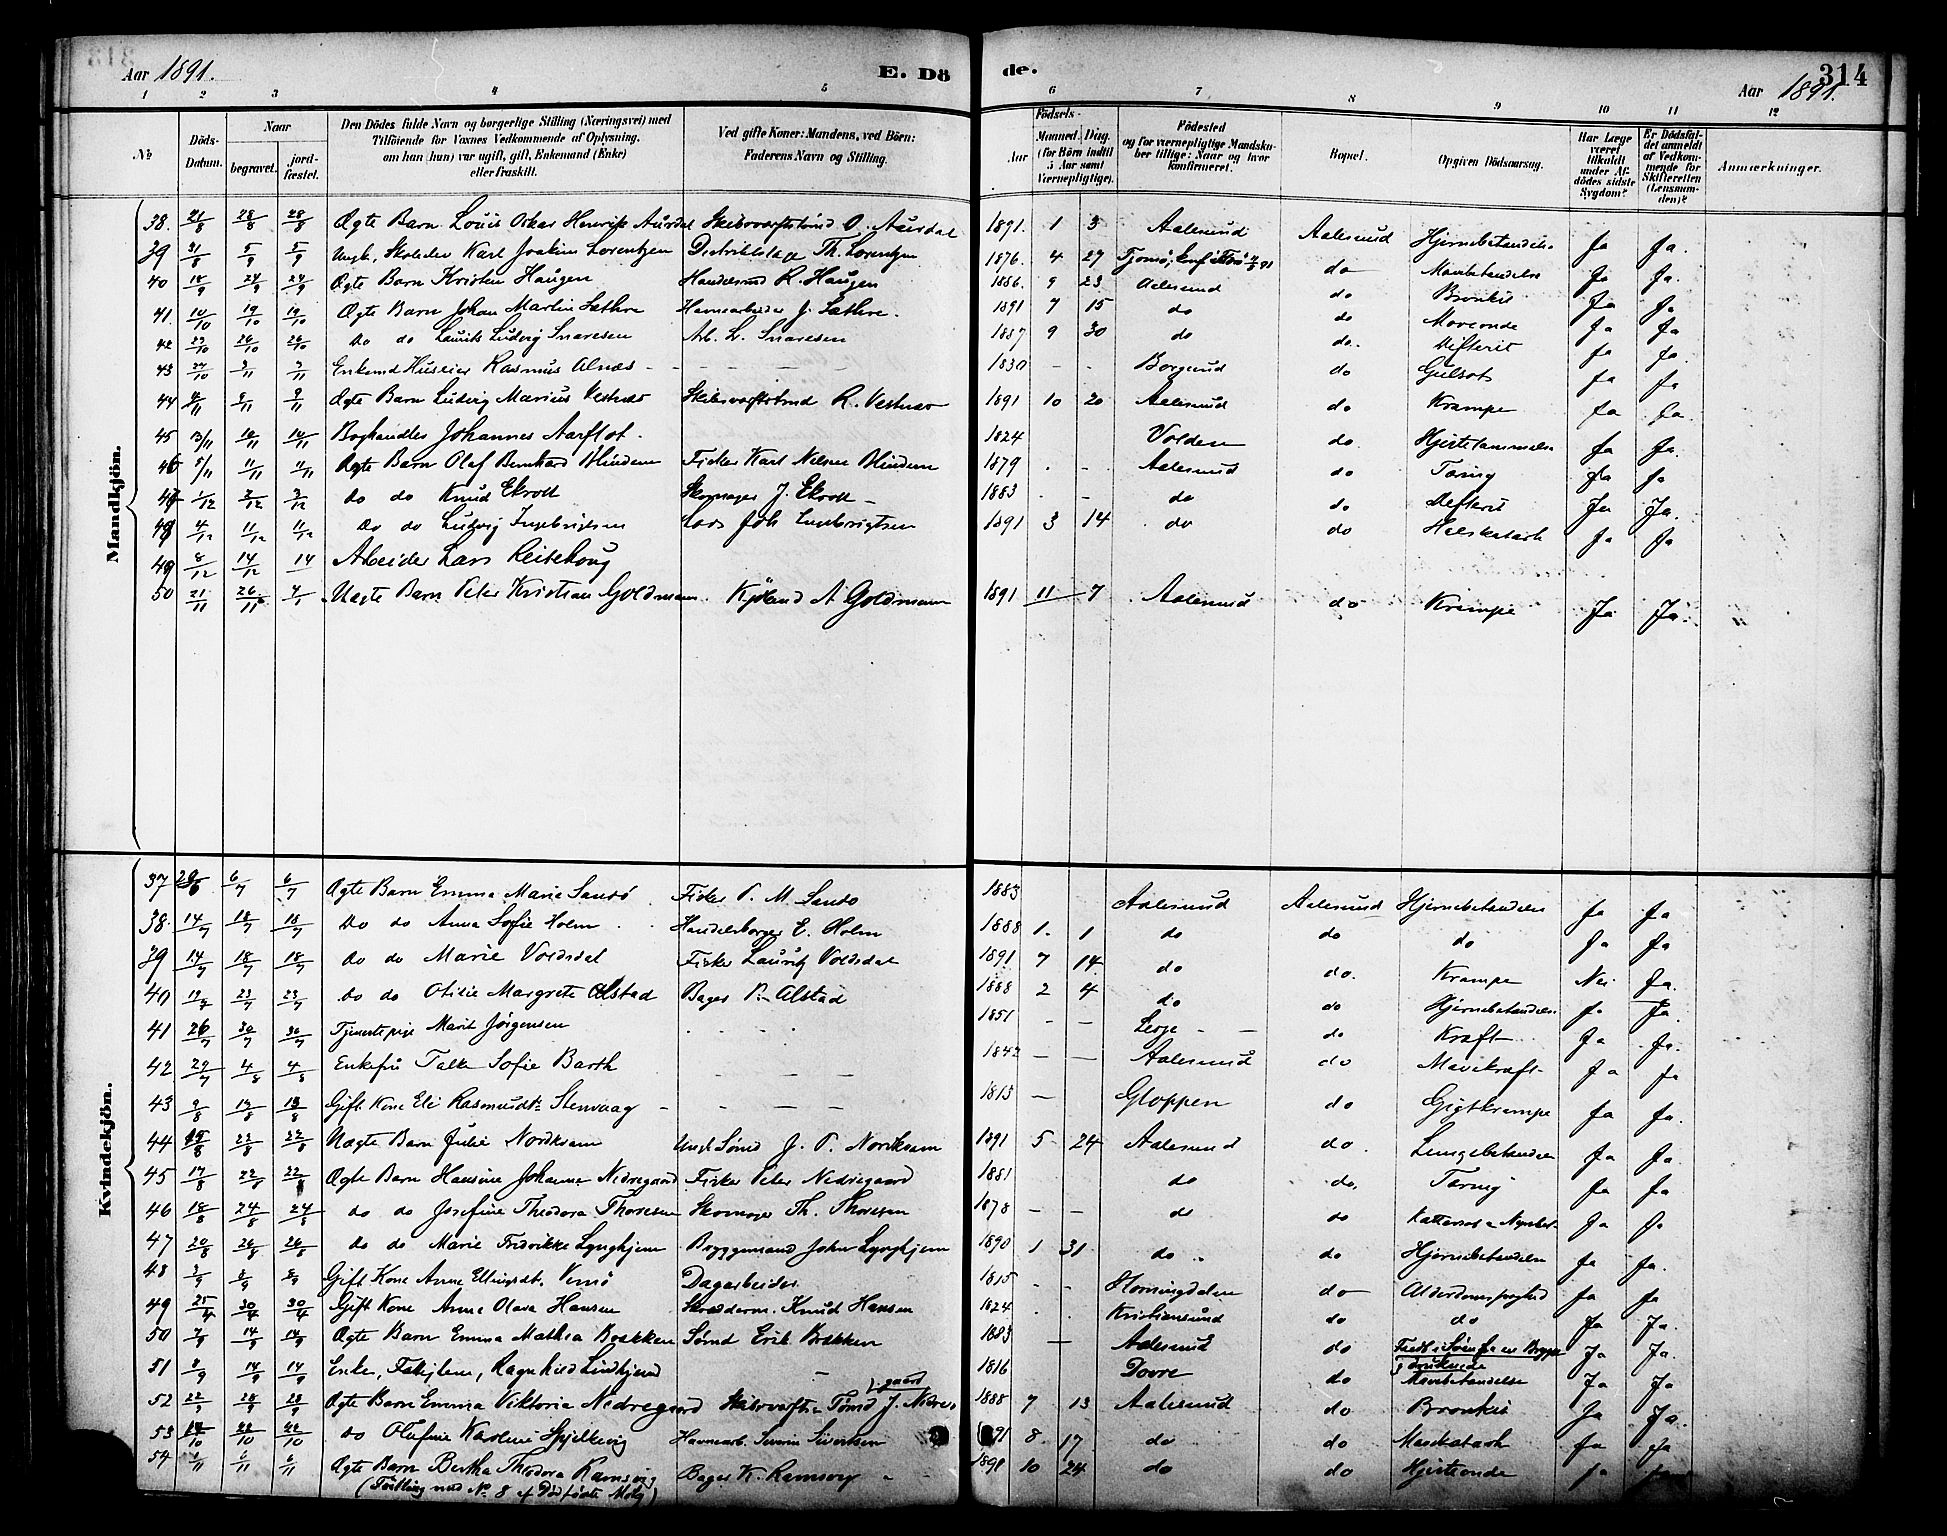 Aar 1891. E. Dö de. Aar 1891. 314
1 2 3 4 5 6 7 8 9 10 11 12
No Döds-Datum. Naar begravet. jordfæstet. Den Dödes fulde Navn og borgerlige Stilling (Næringsvei) med Tilföiende for Voxnes Vedkommende af Oplysning, om han (hun) var ugift, gift, Enkemand (Enke) eller fraskilt. Ved gifte Koner: Mandens, ved Börn: Faderens Navn og Stilling. Födsels- Aar Maaned. Dag. (for Börn indtil 5 Aar samt Værnepligtige). Födested og for værnepligtige Mandskaber tillige: Naar og hvor konfirmeret. Bopæl. Opgiven Dödsaarsag. Har Læge været tilkaldt under Afdödes sidste Sygdom? Er Dödsfaldet anmeldt af Vedkommende for Skifteretten (Lensmanden)? Anmærkninger.
Mandkjön.
38. 21/8 28/8 28/8 Ægte Barn Louis Oskar Henrik Aursdal Skibsværftstömd O. Aursdal 1891. 1 3 Aalesund Aalesund Hjernebetændelse Ja Ja.
39 31/8 5/9 5/9 Ungk. Karl Joakim Lorentzen Th. Lorentzen 1876. 4 27 do Mavebetændelse Ja Ja.
40 18/9 24/9 24/9 Ægte Barn Kristen Haugen Handelsmd R. Haugen 1886. 9 23 Aalesund do Bronkit Ja Ja.
41. 10/10 19/10 19/10 Ægte Barn Johan Martin Sæthre Havnearbeider J. Sæthre. 1891 7 15 do do Maveonde Ja Ja
42 23/10 26/10 26/10 do do Laurits Ludvig Snaresen Arb. L. Snaresen 1887 9 30 do do. Difterit Ja Ja.
43 27/10 3/11 3/11 Enkemd Huseier Rasmus Alnæs 1830 Borgund do Gulsot Ja Ja
44 2/11 9/11 9/11 Ægte Barn Ludvig Marius Vestnæs Skibsværftstömd R. Vestnæs 1891 10 20 Aalesund do Krampe Ja Ja.
45 13/11 16/11 16/11 Boghandler Johannes Aarflot. 1824 Volden do Hjertelammelse Ja Ja.
46 5/11 11/11 11/11 Ægte Barn Olaf Bernhard Blindem Fisker Karl Nilsen Blindem 1879 Aalesund do Tæring Ja Ja
47 1/12 3/12 3/12 do do Knud Ekroll Skomager J. Ekroll 1883 do do Difterit Ja Ja.
48 4/12 11/12 11/12 do do Ludvig Ingebrigtsen Lods Joh Ingebrigtsen 1891 3 14 do do Halskatarh Ja Ja
49 8/12 14/12 14 Arbeider Lars Reitehoug
50 21/11 26/11 Uægte Barn Peter Kristian Goldmann A Goldmann 1891 11 7 Aalesund do Krampe Ja Ja.
Kvindekjön.
37 6/7 6/7 Ægte Barn Emma Marie Sandö Fisker P. M. Sandö 1883 Aalesund Aalesund Hjernebetændelse Ja Ja
38. 14/7 18/7 18/7 do do Anna Sofie Holm Handelsborger E. Holm 1888 1. 1 do do do Ja Ja
39 14/7 18/7 18/7 do do Marie Voldsdal Fisker Lauritz Voldsdal 1891 7 14 do do. Krampe Nei Ja.
40 19/7 23/7 23/7 do do Otilie Margrete Alstad Bager P. Alstad 1888 2 4 do do Hjernebetændelse Ja Ja.
41 26/7 30/7 30/7 Tjenestepige Marit Jörgensen 1851 do Kræft Ja Ja.
42 29/7 4/8 4/8 Enkefru Talke Sofie Barth 1842 Aalesund do Mavekræft Ja Ja
43 9/8 13/8 13/8 Gift Kone Eli Rasmusdtr Stenvaag 1813 Gloppen do Gigtkrampe Ja Ja.
44 15/8 22/8 22/8 Uægte Barn Julie Nordksam Ungk Sömd J. P. Nordksam 1891 5 24 Aalesund do. Lungebetændelse Ja Ja.
45 17/8 22/8 22/8 Ægte Barn Hansine Johanne Nedregaard Fisker Peter Nedregaard 1881 do do. Tæring Ja Ja
46 18/8 24/8 24/8 do do Josefine Theodora Thoresen Skomager Th. Thoresen 1878 do do Ja Ja
47 20/8 26/8 26/8 do do Marie Fredrikke Lynghjem Bryggemand John Lynghjem 1890 1 31 do do Hjernebetændelse Ja Ja.
48 3/9 8/9 8/9 Gift Kone Anne Ellingsdt. Vemö Dagarbeider 1815 Horningdalen do Alderdomssvaghed Ja Ja
49 25/4 30/4 30/4 Gift Kone Anna Olava Hansen Skræderm. Knud Hansen 1824 Kristiansund do do Ja Ja.
50 7/9 14/9 14/9 Ægte Barn Emma Mathea Brækken Sömd Erik Brækken 1883 Aalesund do Faldt i Söen fra en Brygge druknede Ja Ja.
51 8/9 14/9 14/9 Enke, Ragnhild Lindhjem 1816 Dovre do Mavebetændelse Ja Ja
52 22/9 28/9 28/9 Ægte Barn Emma Viktoria Nedregaard Skibsværfts Tömd J. Nedregaard 1888 7 13 Aalesund do Bronkit Ja Ja.
53 17/10 22/10 22/10 do Olufine Karoline Spjelkevig Havnearb. Severin Sivertsen 1891 8 17 do do Mavekatarh Ja Ja
54 1/11 6/11 6/11 Ægte Barn Bertha Theodora Ramsvig Bager K. Ramsvig 1891 10 24 do do Hjerteonde Ja Ja
(Tvilling med No 8 af Dödfödte Mdkj)